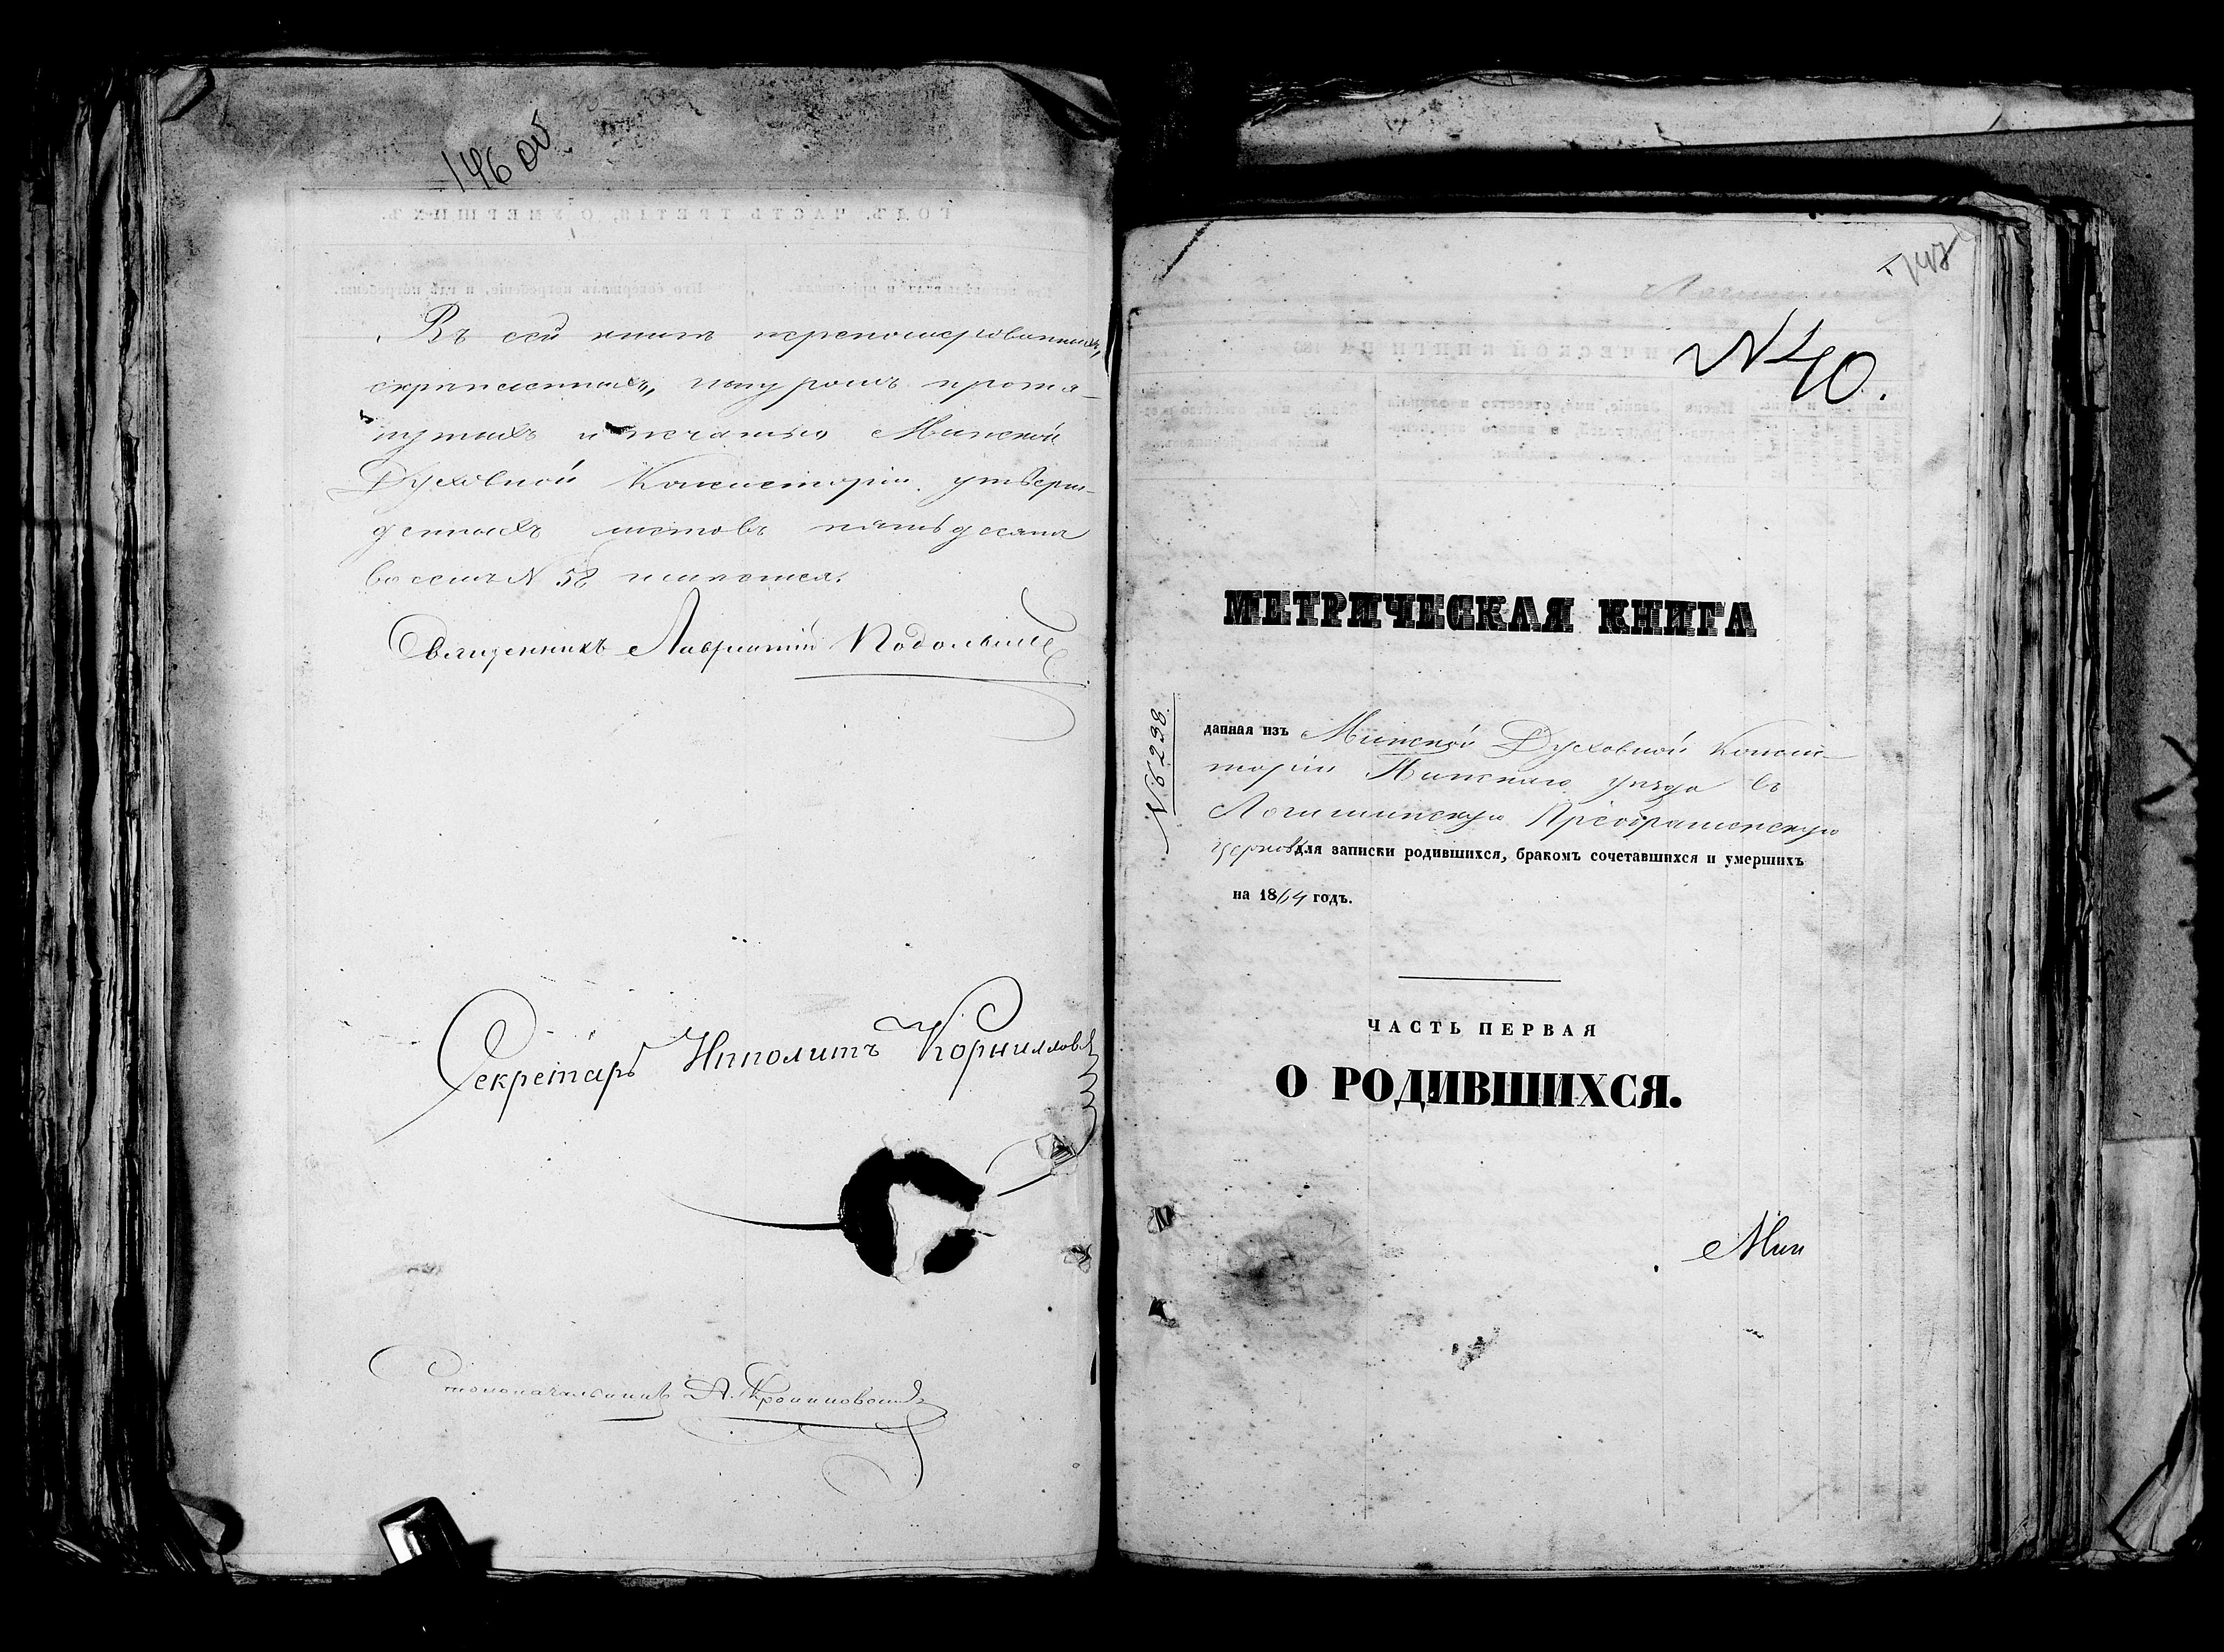 146 об
Въ сей книгѣ перенумерованныхъ,
скрѣпленныхъ, шнуромъ протя-
нутыхъ и печатью Минской
Духовной Консисторіи утверж-
денныхъ листовъ пятьдесятъ
восемь N 58 имѣется.
Священникъ Лаврентій
Секретарь Ипполитъ Корниллов
Столоначальникъ А.
147
N 40.
МЕТРИЧЕСКАЯ КНИГА
N 6238.
данная изъ Минской Духовной Консис-
торіи Пинскаго уѣзда въ
Логишинскую Преображенскую
церковь для записки родившихся, бракомъ сочетавшихся и умершихъ
на 1864 годъ.
ЧАСТЬ ПЕРВАЯ
О РОДИВШИХСЯ.
Мин